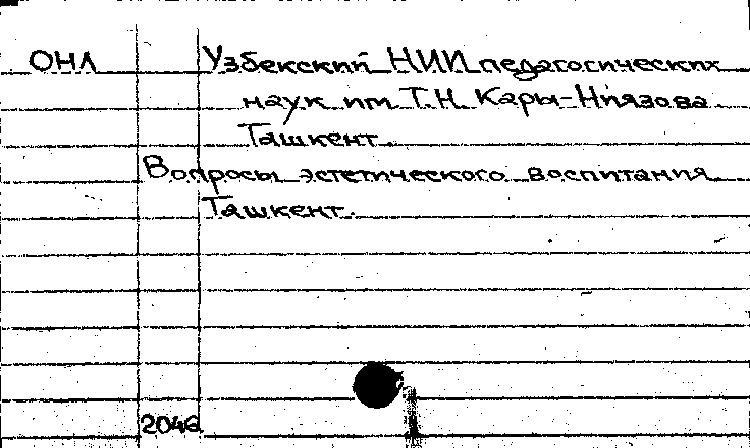 ОНЛ Узбекский НИИ педагогических
наук им Т.Н. Кары-Ниязова
Ташкент.
Вопросы эстетического воспитания
Ташкент.